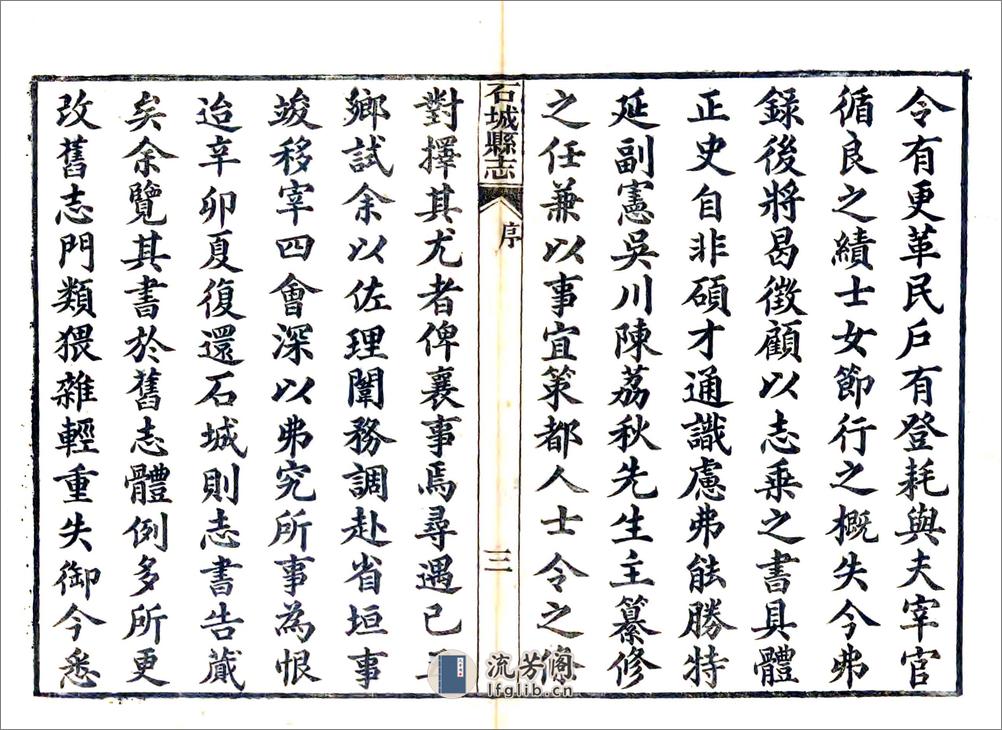 令有更革民戶有登耗與夫宰官
循良之績士女節行之概失今弗
錄後將曷徴顧以志乘之書具體
正史自非碩才通識慮弗能勝特
延副憲吳川陳荔秋先生主纂修
之任兼以事宜策都人士令之條
石城縣志
序
三
對擇其尤者俾襄事焉尋遇己
鄉試余以佐理闈務調赴省垣事
竣移宰四會深以弗究所事為恨
迨辛卯夏復還石城則志書告蕆
矣余覽其書於舊志體例多所更
改舊志門類猥雜輕重失御今悉
流芳阁
lfglib.cn